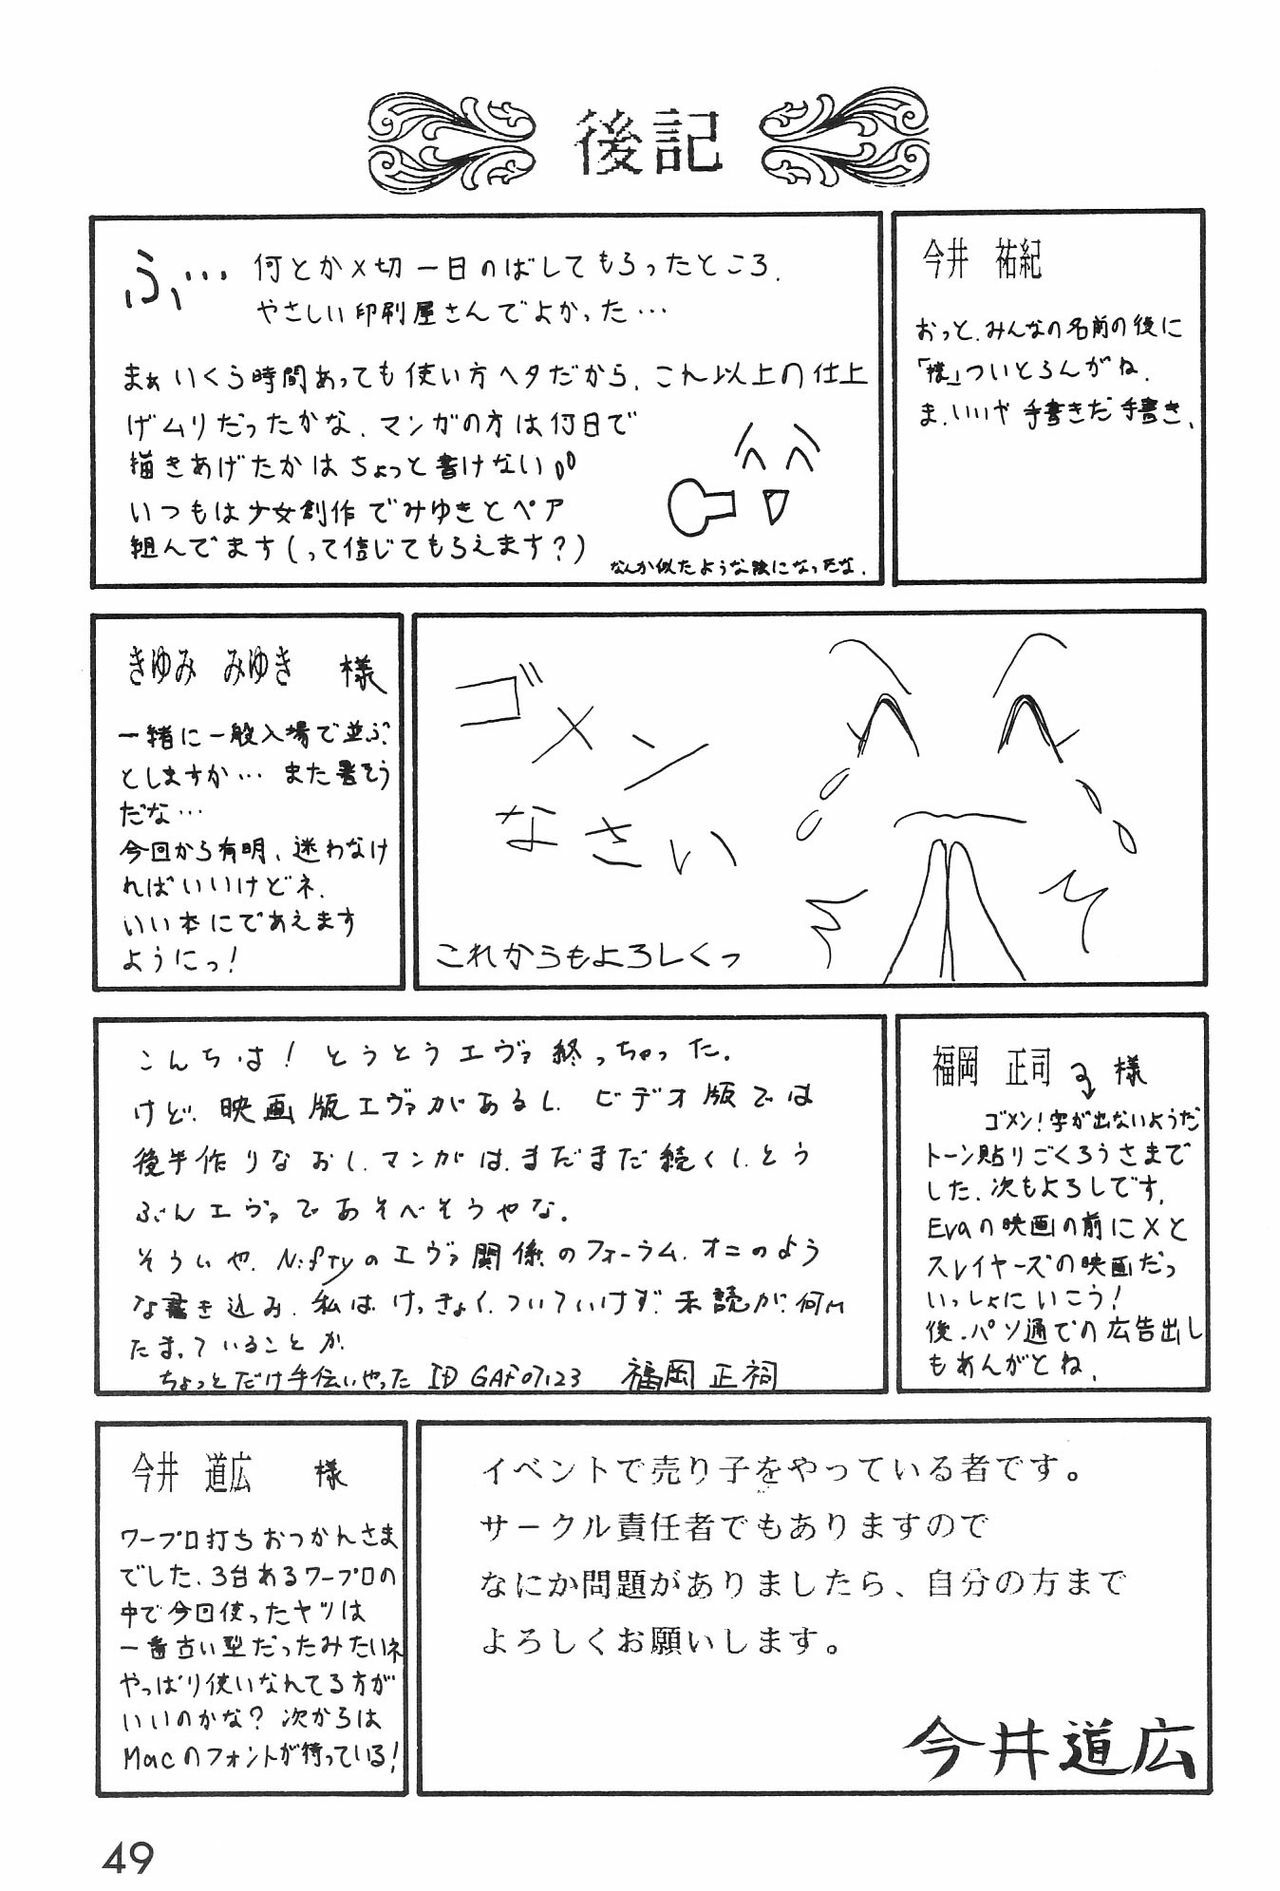 後記
ふ…
何とか〆切一日のばしてもらったところ.
やさしい印刷屋さんでよかった…
まぁいくら時間あっても使い方ヘタだから、これ以上の仕上
げムリだったかな、マンガの方は何日で
描きあげたかはちょっと書けない
いつもは少女創作でみゆきとペア
組んでます(って信じてもらえます?)
なんか似たような顔になったな.
今井 祐紀
おっと、みんなの名前の後に
「様」ついとらんがね.
ま、いいや手書きだ手書き、
きゆみ みゆき 様
一緒に一般入場で並ぶ
としますか… また暑そう
だな…
今回から有明、迷わなけ
ればいいけどネ.
いい本にであえます
ようにっ!
ゴメン
なさい
これからもよろしくっ
こんちは! とうとうエヴァ終っちゃった.
けど、映画版エヴァがあるし、ビデオ版では
後半作りなおし、マンガは、まだまだ続くし、とう
ぶんエヴァであそべそうやな。
そういや、Niftyのエヴァ関係のフォーラム、オニのよう
な書き込み、私は、けっきょく、ついていけず、未読が、何M
たまっていることか.
ちょっとだけ手伝いやった ID GAF07123 福岡 正祠
福岡 正司 様
ゴメン!字が出ないようだ
トーン貼りごくろうさまで
した、次もよろしです.
Evaの映画の前にXと
スレイヤーズの映画だっ
いっしょにいこう!
後、パソ通での広告出し
もあんがとね.
今井 道広 様
ワープロ打ちおつかれさま
でした、3台あるワープロの
中で今回使ったヤツは
一番古い型だったみたいネ
やっぱり使いなれてる方が
いいのかな? 次からは
Macのフォントが待っている!
イベントで売り子をやっている者です。
サークル責任者でもありますので
なにか問題がありましたら、自分の方まで
よろしくお願いします。
今井道広
49